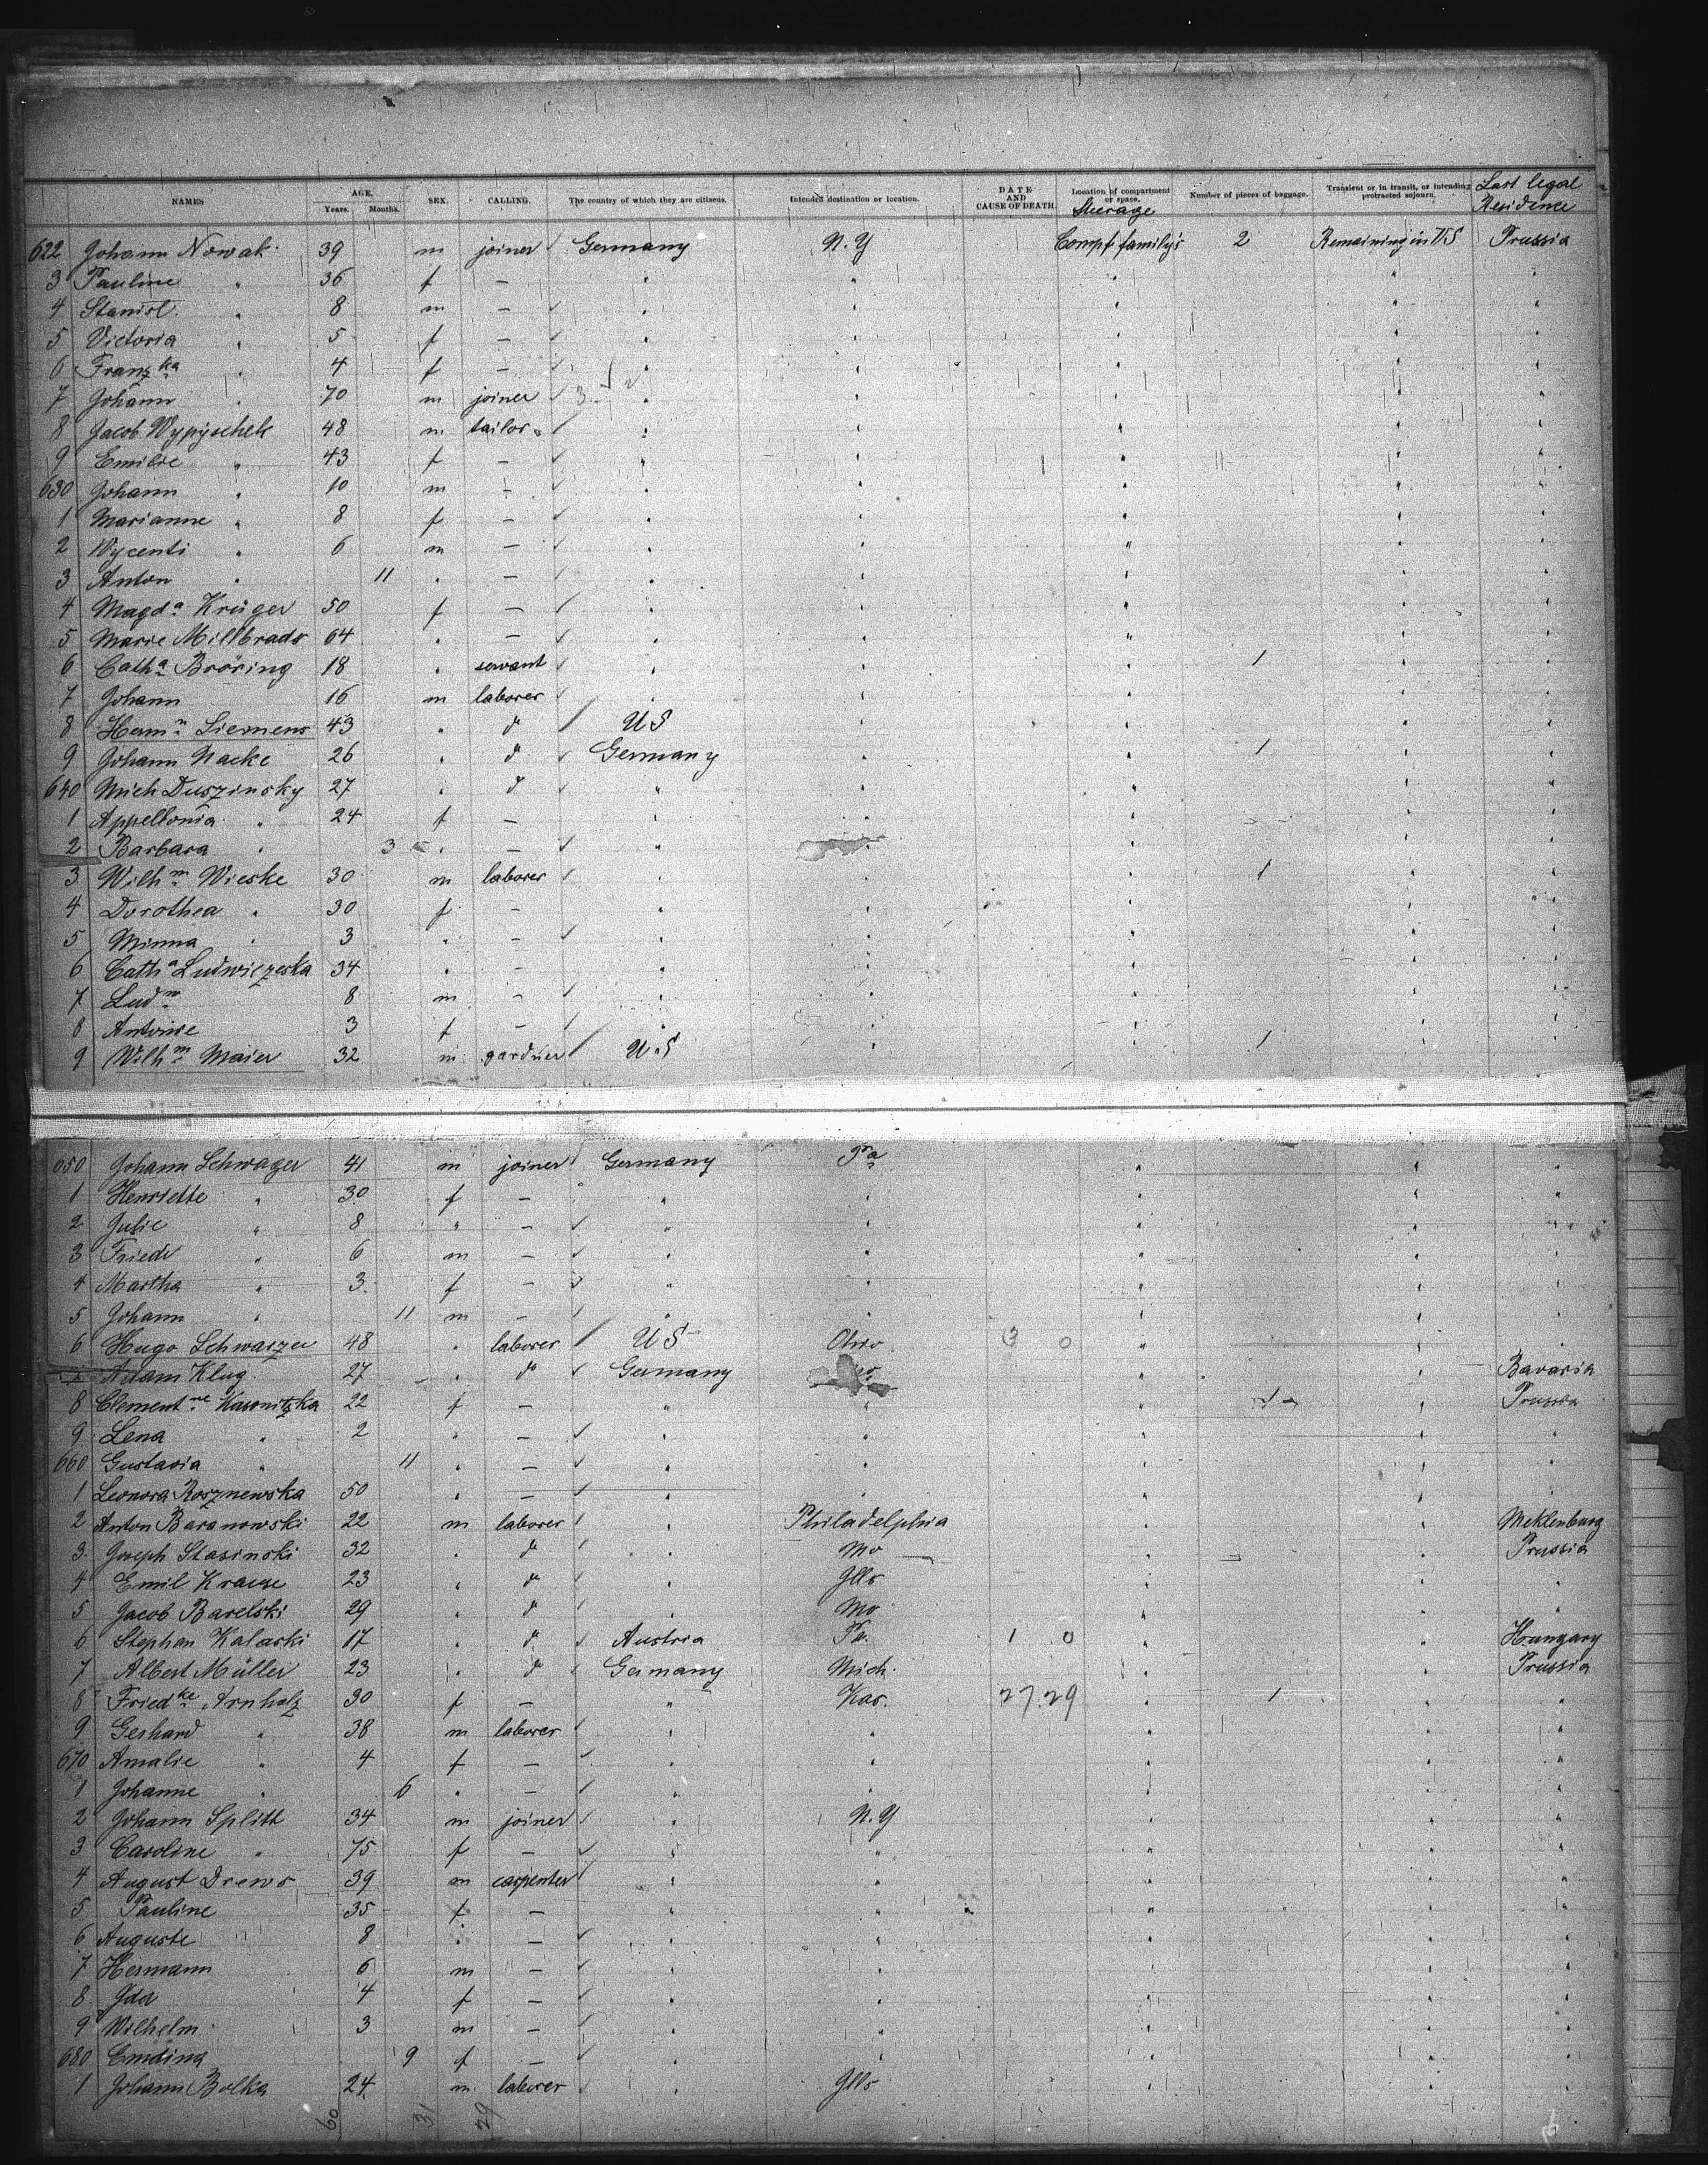 NAMES AGE. Years. Months. SEX. CALLING. The country of which they are citizens. Intended destination or location. DATE AND CAUSE OF DEATH. Location of compartment or space. Steerage Number of pieces of baggage. Transient or in transit, or intending protracted sojourn. Last legal Residence
622 Johann Nowak 39 m joiner Germany N.Y Compf family's 2 Remaining in US Prussia
3 Pauline " 36 f —
4 Stanisl. " 8 m —
5 Victoria " 5 f —
6 Franzka " 4 f —
7 Johann " 70 m joiner
8 Jacob Wypyschek 48 m tailor
9 Emilie " 43 f —
630 Johann " 10 m —
1 Marianne " 8 f —
2 Wycenti " 6 m —
3 Anton " 11 " —
4 Magda Krüger 50 f —
5 Marie Millbradt 64 " —
6 Catha Bröring 18 " servant 1
7 Johann 16 m laborer
8 Hermn Siemens 43 " do US
9 Johann Nacke 26 " do Germany 1
640 Mich Duszinsky 27 " do
1 Appellonia " 24 f —
2 Barbara " 3 " —
3 Wilhm Wieske 30 m laborer 1
4 Dorothea " 30 f -
5 Minna " 3 " -
6 Catha Ludwiczeska 34 " -
7 Ludw 8 m -
8 Antoine 3 f -
9 Wilhm Maier 32 m gardner U.S 1
650 Johann Schwager 41 m joiner Germany Pa
1 Henriette " 30 f —
2 Julie " 8 " —
3 Friedr " 6 m —
4 Martha " 3 f —
5 Johann " 11 m —
6 Hugo Schwarzer 48 " laborer US Ohio 3 0
7 Adam Klug 27 " do Germany Bavaria
8 Clementne Kasonitzka 22 f — 1 Prussia
9 Lena " 2 " —
660 Gustavia " 11 " —
1 Leonora Rosznewska 50 " —
2 Anton Baranowski 22 m laborer Philadelphia Meklenburg
3 Joseph Stasinski 32 " do Mo Prussia
4 Emil Krause 23 " do Ills
5 Jacob Barelski 29 " do Mo
6 Stephan Kalaski 17 " do Austria Pa. 1 0 Hungary
7 Albert Müller 23 " do Germany Mich. Prussia
8 Friedke Arnholz 30 f — " Kas. 27.29 1
9 Gerhard " 38 m laborer
670 Amalie " 4 f —
1 Johanne " 6 " —
2 Johann Splitt 34 m joiner N.Y
3 Caroline " 75 f —
4 August Drews 39 m carpenter
5 Pauline 35 f —
6 Auguste 8 " —
7 Hermann 6 m —
8 Ida 4 f —
9 Wilhelm 3 m —
680 9 f —
1 Johann Bolka 24 m laborer Ills
60 31 29